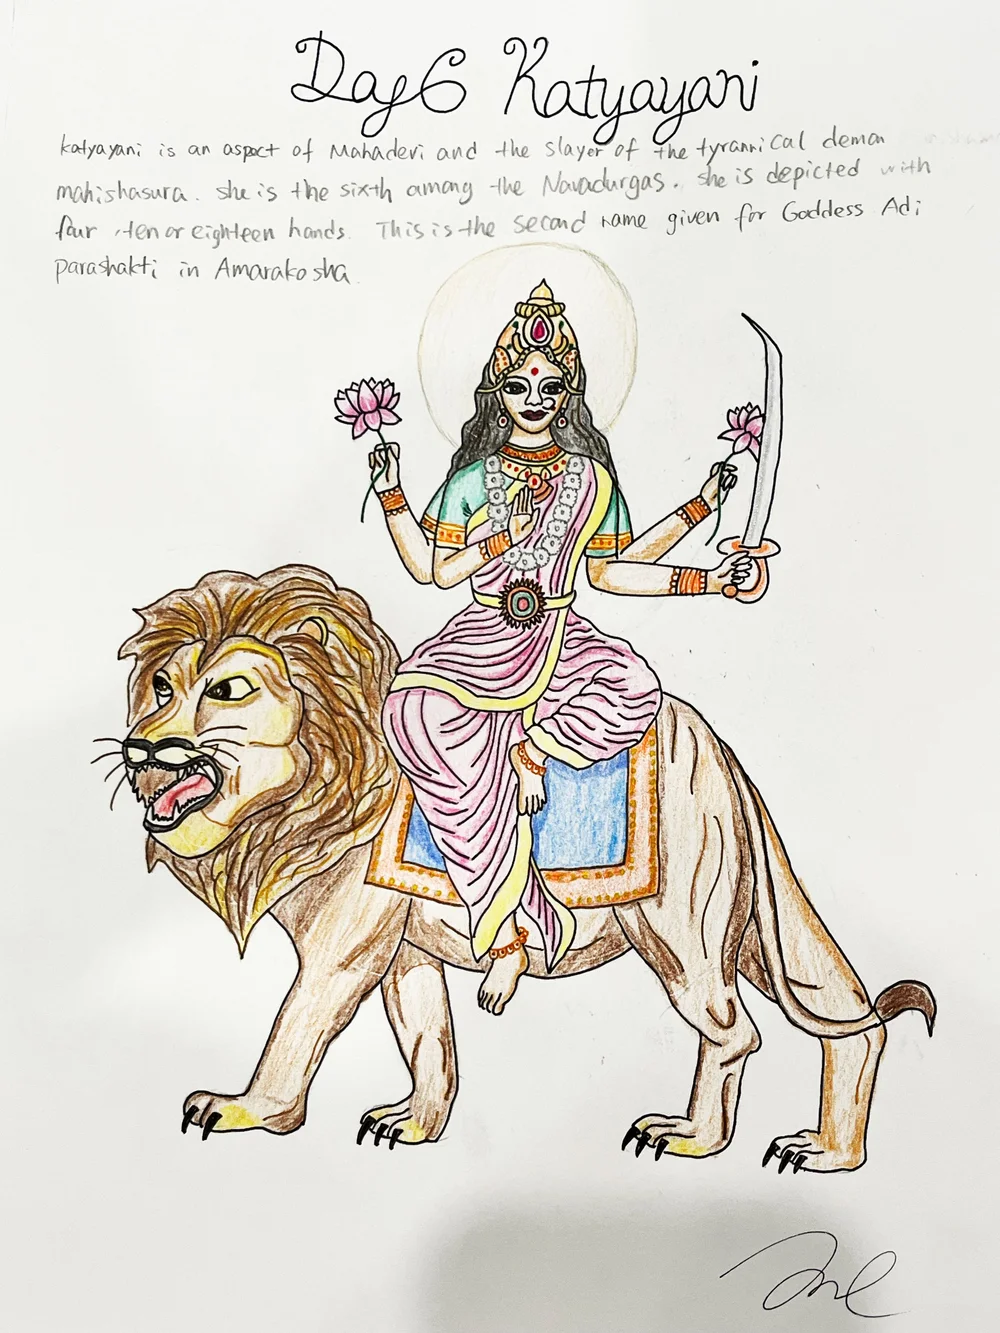 Day 6 Katyayani
Katyayani is an aspect of Mahadevi and the slayer of the tyrannical demon
mahishasura. she is the sixth among the Navadurgas. she is depicted with
four, ten or eighteen hands. This is the second name given for Goddess Adi
parashakti in Amarakosha